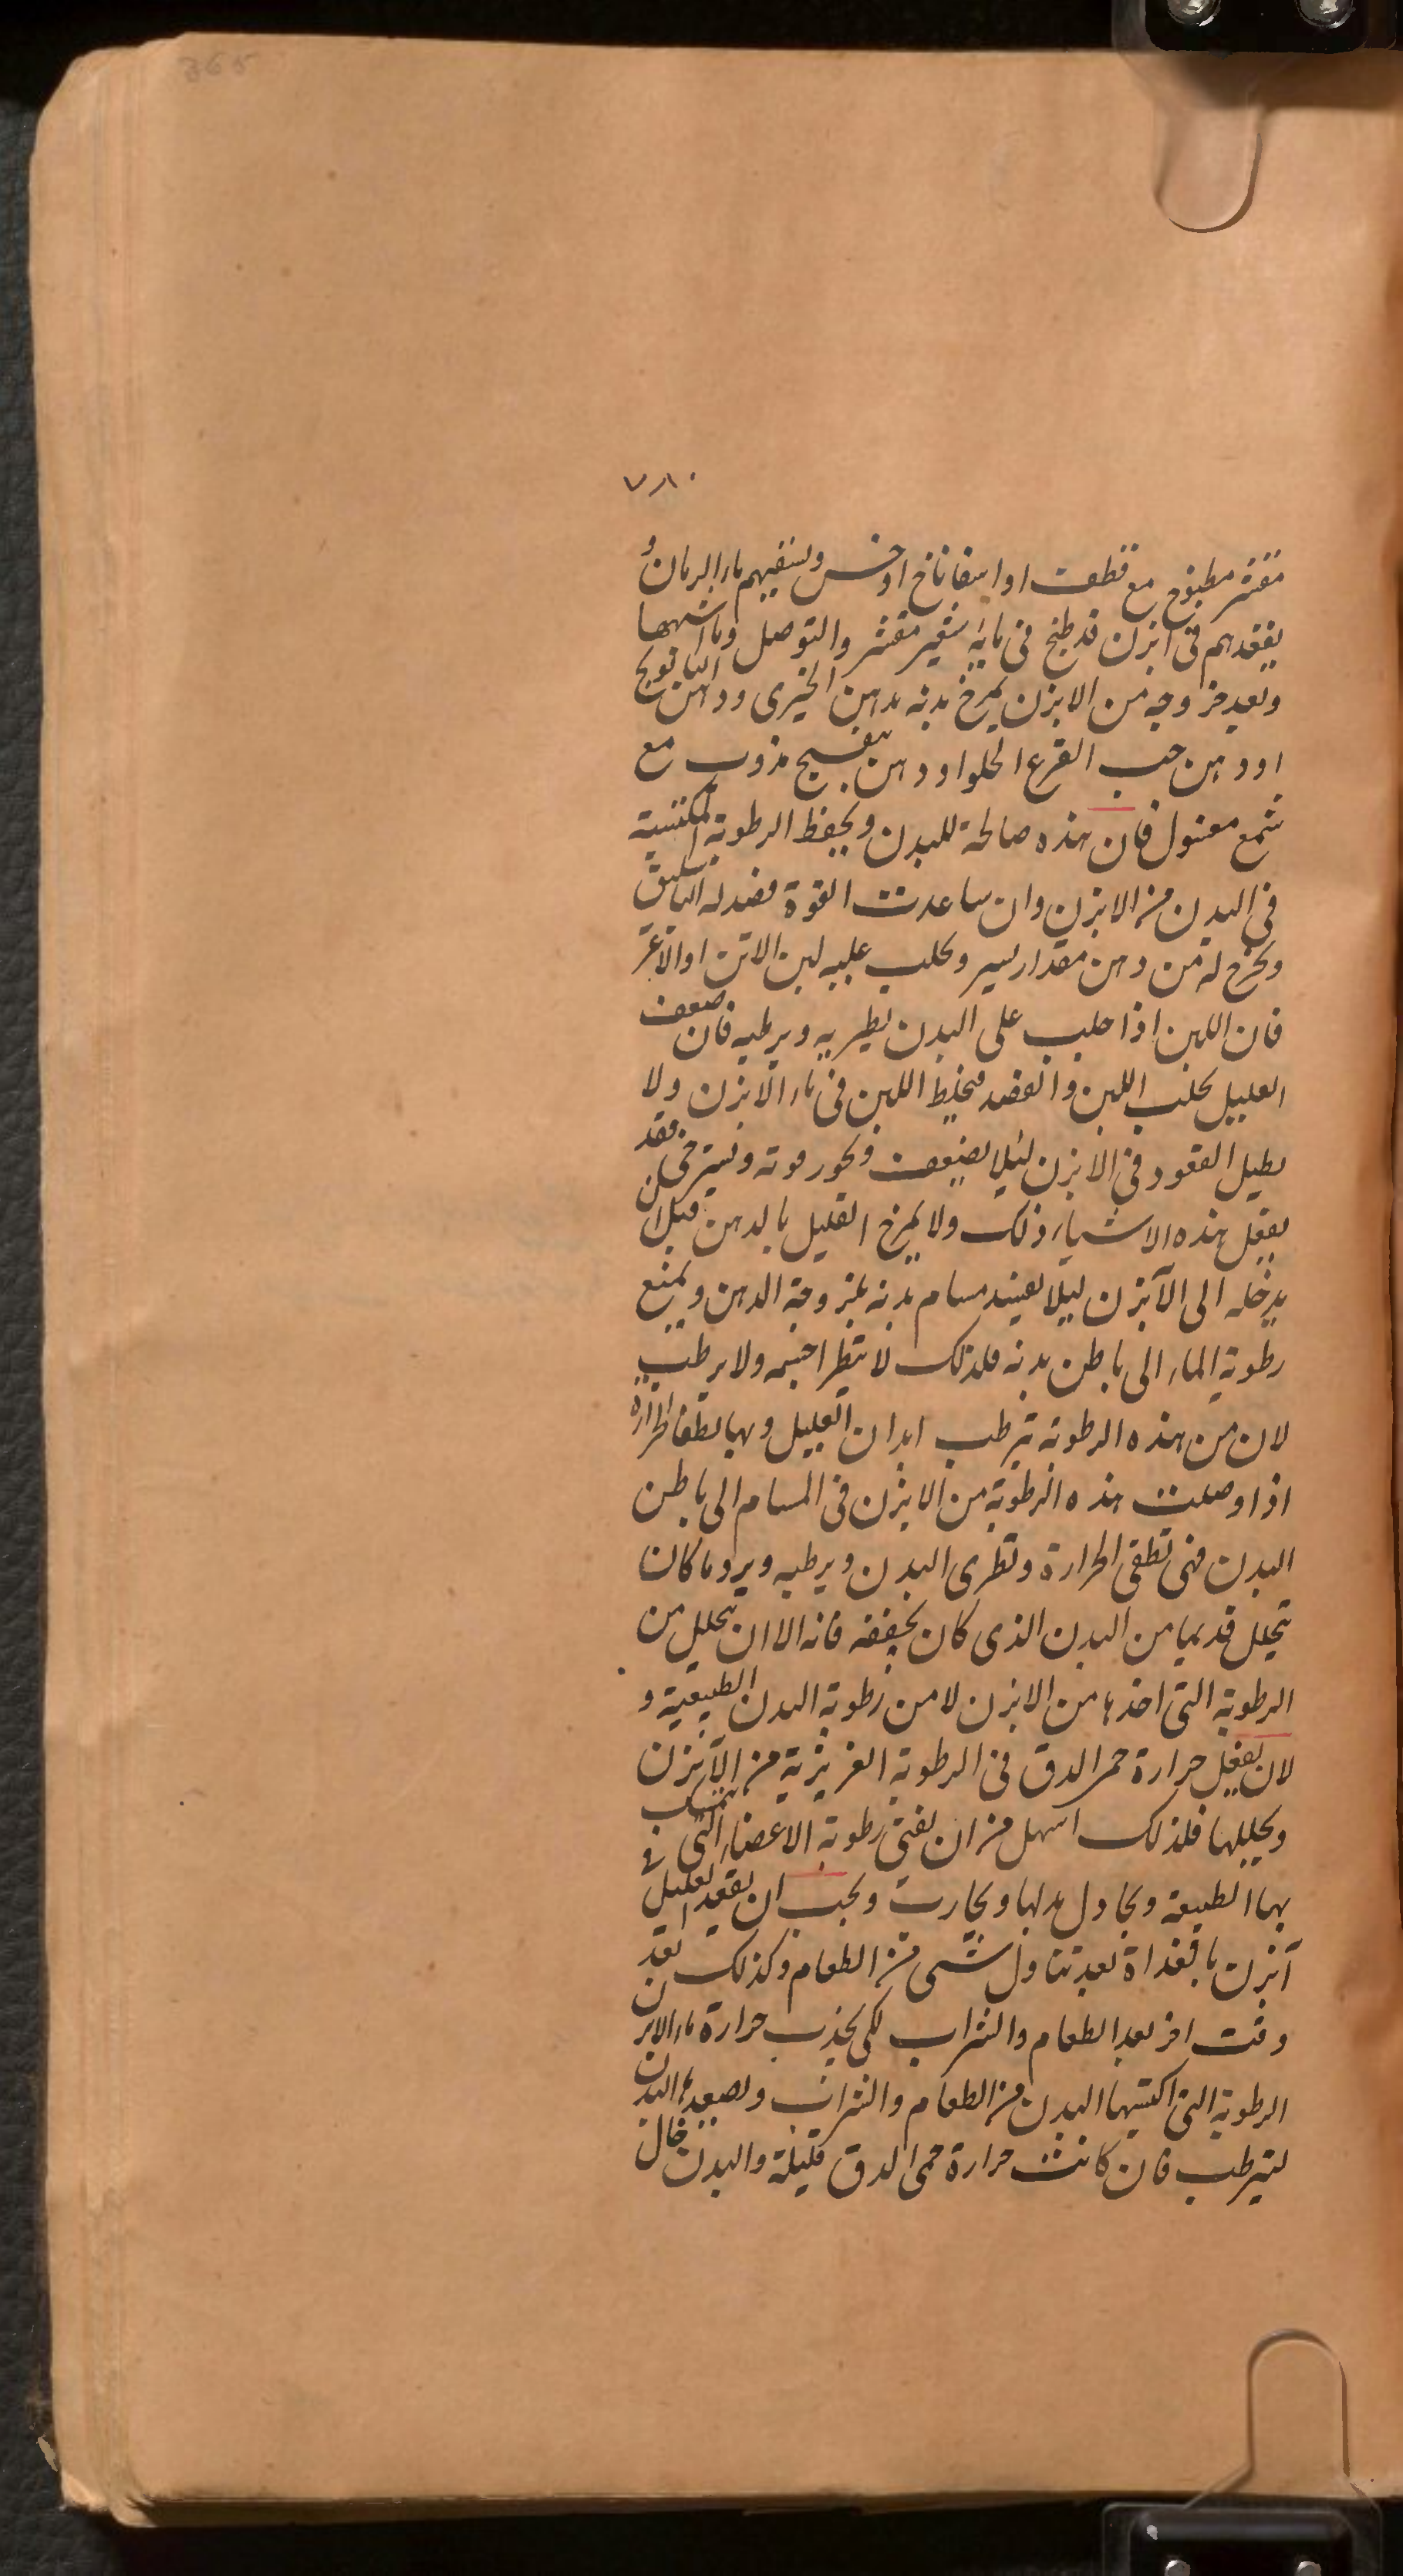 365
٧٨٠
مقشر مطبوخ مع قطف او اسفاناخ او خس ويسقيهم ماء الرمان و
يقعدهم فى ابزن قد طبخ فى مايه شعير مقشر والتوصل وما اشبهها
وبعد خروجه من الابزن يمرخ بدنه بدهن الخيرى ودهن البابونج
او دهن حب القرع الحلو او دهن بنفسج مذوب مع
شمع مغسول فان هذه صالحة للبدن ويحفظ الرطوبة المكتسبة
فى البدن من الابزن وان ساعدت القوة فصد له الباسليق
ويخرج له من دهن مقدار يسير ويحلب عليه لبن الاتن او الاعنز
فان اللبن اذا حلب على البدن يطريه ويرطبه فان ضعف
العليل يحلب اللبن والفصد فيخلط اللبن فى ماء الابزن ولا
يطيل القعود فى الابزن ليلا يضعف ويخور قوته ويسترخى فقد
يفعل هذه الاشياء ذلك ولا يمرخ العليل بالدهن قبل ان
يدخله الى الآبزن ليلا يفسد مسام بدنه بلزوجة الدهن ويمنع
رطوبة الماء الى باطن بدنه فلذلك لا ينظر اخيه ولا يرطب
لان من هذه الرطوبة ترطب ابدان العليل وبها يطفا الحرارة
اذا وصلت هذه الرطوبة من الابزن فى المسام الى باطن
البدن فهى تطفى الحرارة وتطرى البدن ويرطبه ويرد ما كان
تحلل قديما من البدن الذى كان يجففه فانه الا ان يتحلل من
الرطوبة التى اخذها من الابزن لا من رطوبة البدن الطبيعية و
لان يفعل حرارة حمى الدق فى الرطوبة الغريزية من الآبزن
ويحللها فلذلك اسهل من ان يفنى رطوبة الاعضاء التى يتمسك
بها الطبيعة ويجادل بدلها ويحارب ويجب ان يقعد العليل فى
آبزن بالغداة بعد تناول شى من الطعام وكذلك بعد
وقت اخر بعد الطعام والشراب لكى يجذب حرارة ماء الابزن
الرطوبة التى اكتسبها البدن من الطعام والشراب ويصعدها البدن
ليترطب فان كانت حرارة حمى الدق قليلة والبدن خال